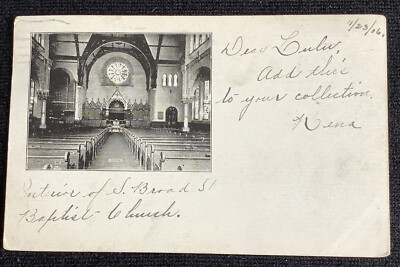 11/23/06.
Dear Lulu,
Add this
to your collection.
Rena
Interior of S. Broad St
Baptist Church.